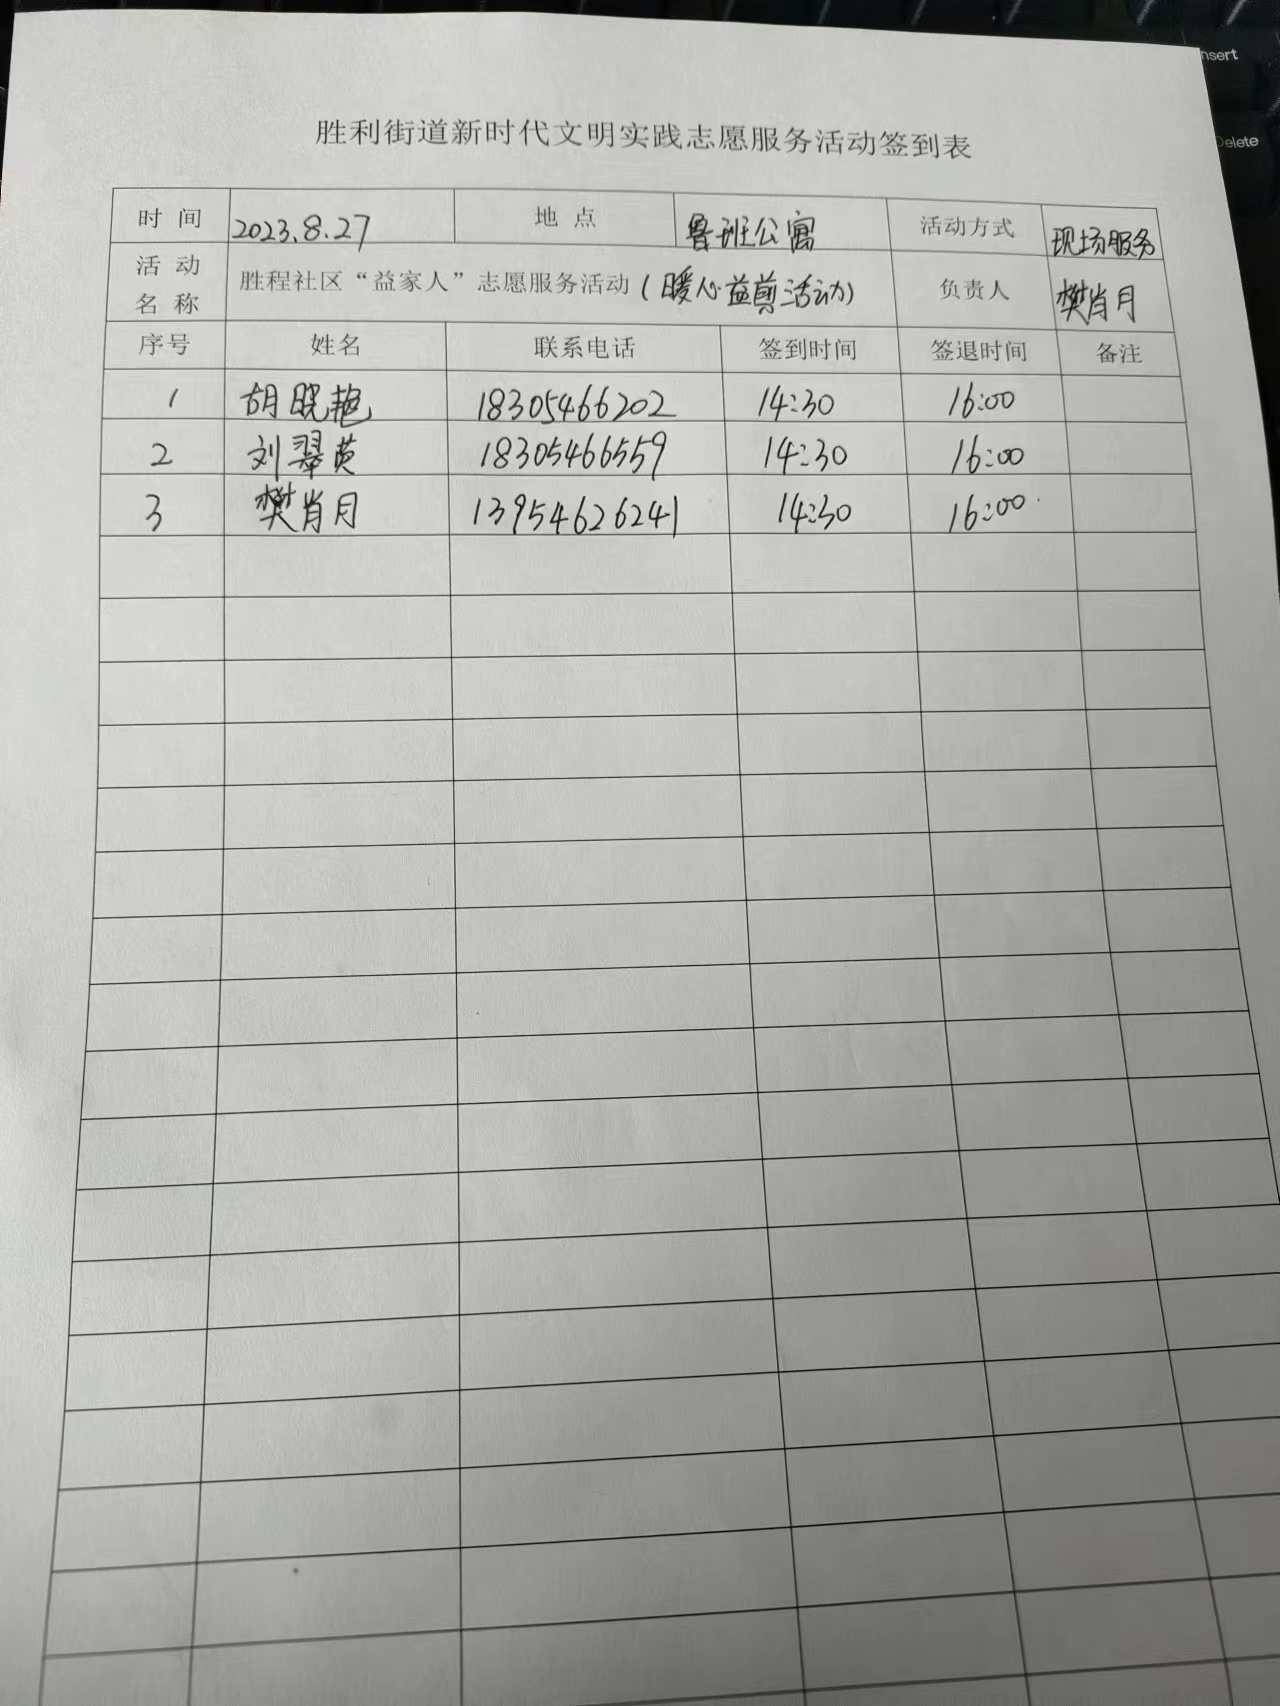 nsert
Delete
胜利街道新时代文明实践志愿服务活动签到表
时 间 2023.8.27 地 点 鲁班公寓 活动方式 现场服务
活 动 名 称 胜程社区“益家人”志愿服务活动(暖心益剪活动) 负责人 樊肖月
序号 姓名 联系电话 签到时间 签退时间 备注
1 胡晓艳 18305466202 14:30 16:00
2 刘翠英 18305466559 14:30 16:00
3 樊肖月 13954626241 14:30 16:00